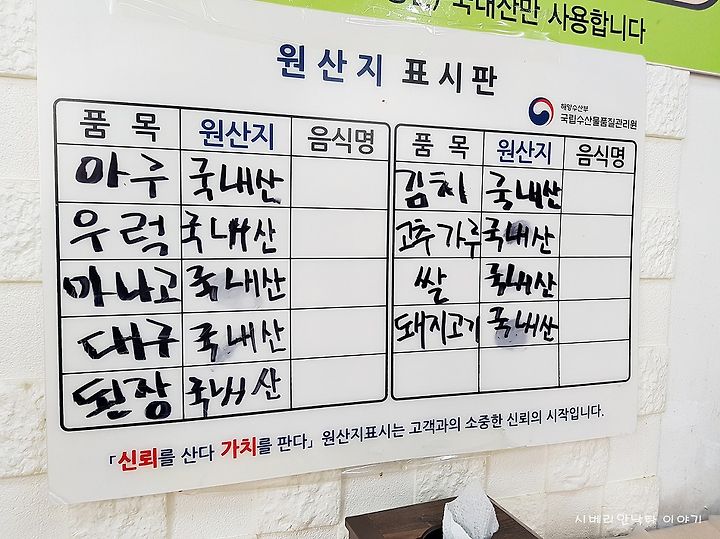 국내산만 사용합니다
원산지 표시판
해양수산부
국립수산물품질관리원
품 목 원산지 음식명 품 목 원산지 음식명
아구 국내산 김치 국내산
우럭 국내산 고추가루 국내산
마나고 국내산 쌀 국내산
대구 국내산 돼지고기 국내산
된장 국내산
「신뢰를 산다 가치를 판다」 원산지표시는 고객과의 소중한 신뢰의 시작입니다.
시베리안낙타 이야기